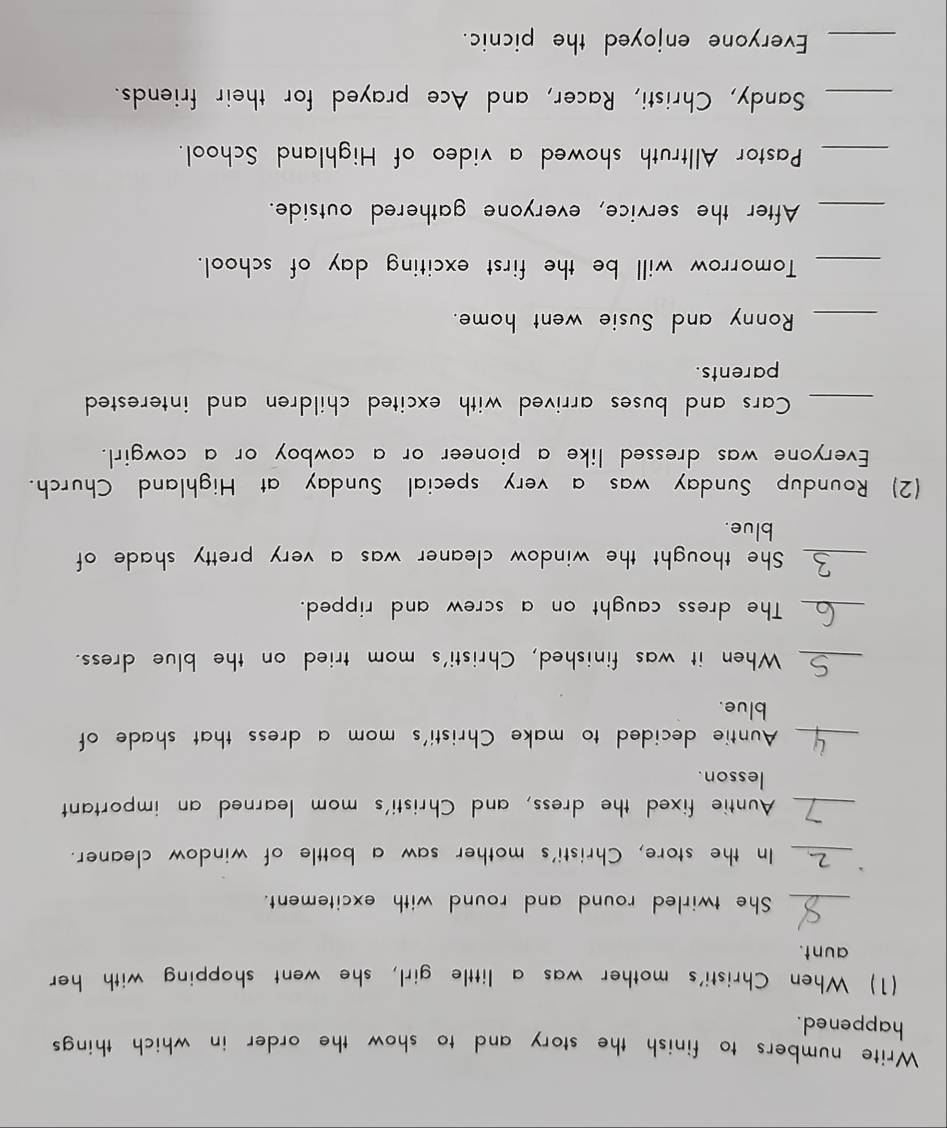 Write numbers to finish the story and to show the order in which things
happened.
(1) When Christi's mother was a little girl, she went shopping with her
aunt.
8 She twirled round and round with excitement.
2 In the store, Christi's mother saw a bottle of window cleaner.
7 Auntie fixed the dress, and Christi's mom learned an important
lesson.
4 Auntie decided to make Christi's mom a dress that shade of
blue.
5 When it was finished, Christi's mom tried on the blue dress.
6 The dress caught on a screw and ripped.
3 She thought the window cleaner was a very pretty shade of
blue.
(2) Roundup Sunday was a very special Sunday at Highland Church.
Everyone was dressed like a pioneer or a cowboy or a cowgirl.
____ Cars and buses arrived with excited children and interested
parents.
____ Ronny and Susie went home.
____ Tomorrow will be the first exciting day of school.
____ After the service, everyone gathered outside.
____ Pastor Alltruth showed a video of Highland School.
____ Sandy, Christi, Racer, and Ace prayed for their friends.
____ Everyone enjoyed the picnic.